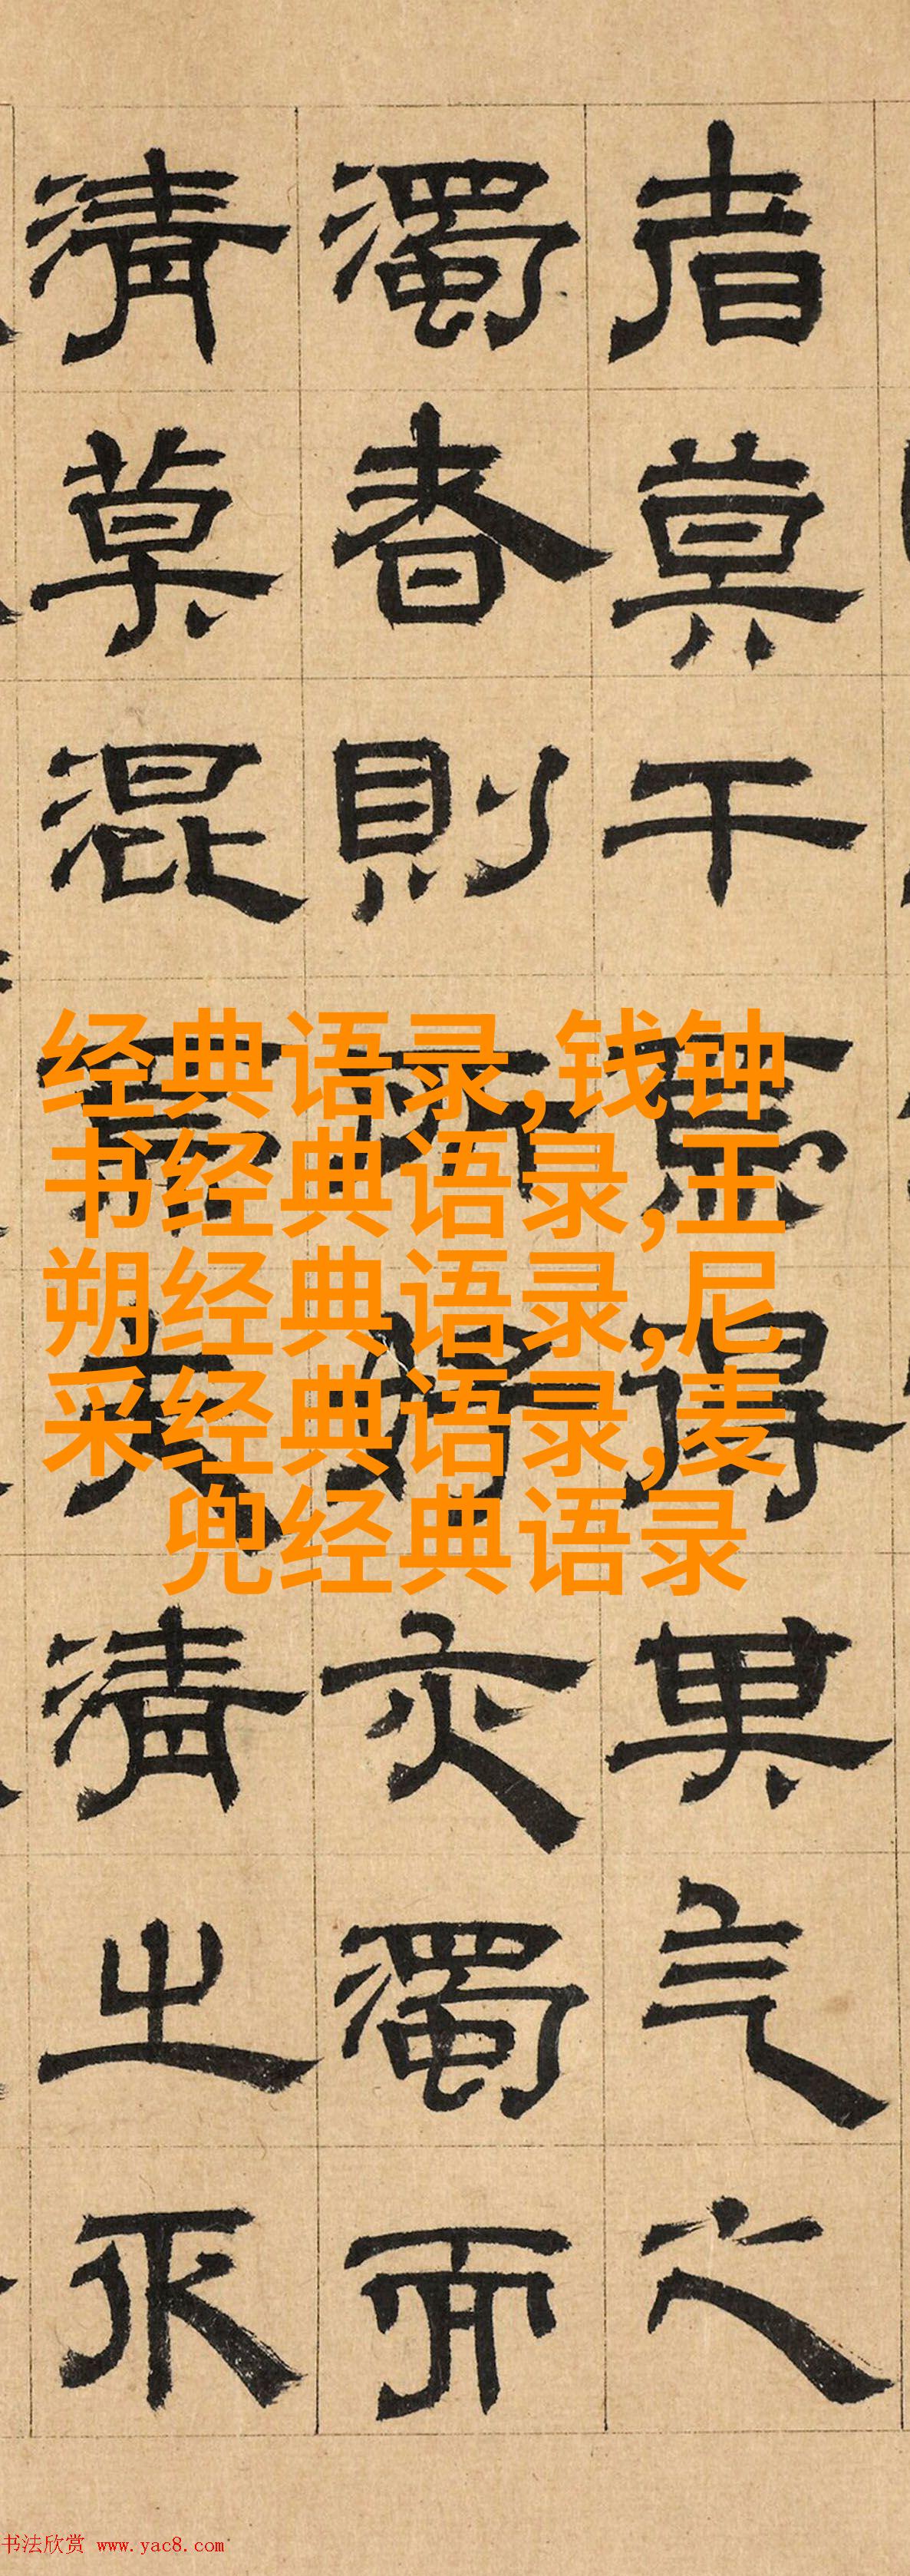 者莫干得其气之
濁者則亦濁而
清莫混夫清之
经典语录,钱钟
书经典语录,王
朔经典语录,尼
采经典语录,麦
兜经典语录
书法欣赏 www.yac8.com